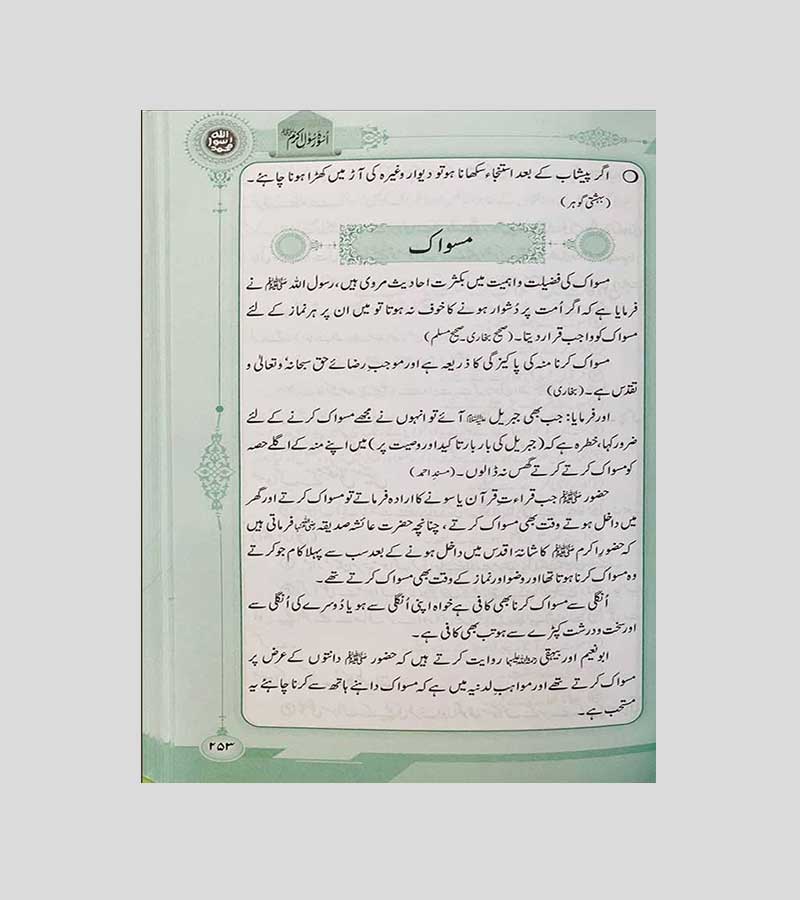 اللہ رسول محمد
اُسوۂ رسولِ اکرم ﷺ
اگر پیشاب کے بعد استنجاء سکھانا ہو تو دیوار وغیرہ کی آڑ میں کھڑا ہونا چاہئے۔
(بہشتی گوہر)
مسواک
مسواک کی فضیلت و اہمیت میں بکثرت احادیث مروی ہیں، رسول اللہ ﷺ نے
فرمایا ہے کہ اگر اُمت پر دُشوار ہونے کا خوف نہ ہوتا تو میں ان پر ہر نماز کے لئے
مسواک کو واجب قرار دیتا۔ (صحیح بخاری۔ صحیح مسلم)
مسواک کرنا منہ کی پاکیزگی کا ذریعہ ہے اور موجبِ رضائے حق سبحانہٗ وتعالیٰ و
تقدّس ہے۔ (بخاری)
اور فرمایا: جب بھی جبریل علیہ السلام آئے تو انہوں نے مجھے مسواک کرنے کے لئے
ضرور کہا، خطرہ ہے کہ (جبریل کی بار بار تاکید اور وصیت پر) میں اپنے منہ کے اگلے حصہ
کو مسواک کرتے کرتے گھس نہ ڈالوں۔ (مسند احمد)
حضور ﷺ جب قراءتِ قرآن یا سونے کا ارادہ فرماتے تو مسواک کرتے اور گھر
میں داخل ہوتے وقت بھی مسواک کرتے، چنانچہ حضرت عائشہ صدیقہ رضی اللہ عنہا فرماتی ہیں
کہ حضورِ اکرم ﷺ کاشانۂ اقدس میں داخل ہونے کے بعد سب سے پہلا کام جو کرتے
وہ مسواک کرنا ہوتا تھا اور وضو اور نماز کے وقت بھی مسواک کرتے تھے۔
اُنگلی سے مسواک کرنا بھی کافی ہے خواہ اپنی اُنگلی سے ہو یا دُوسرے کی اُنگلی سے
اور سخت و درشت کپڑے سے ہو تب بھی کافی ہے۔
ابونعیم اور بیہقی رحمۃ اللہ علیہما روایت کرتے ہیں کہ حضور ﷺ دانتوں کے عرض پر
مسواک کرتے تھے اور مواہب لدنیہ میں ہے کہ مسواک داہنے ہاتھ سے کرنا چاہئے یہ
مستحب ہے۔
۲۵۳